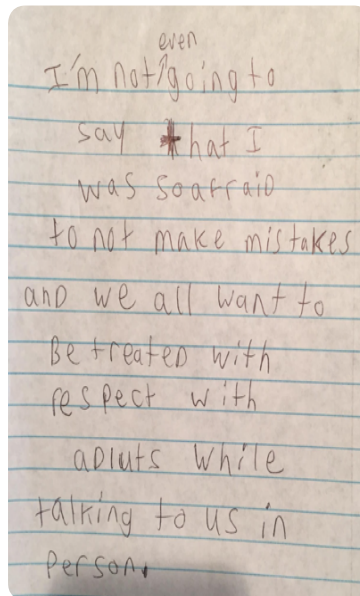 even
I'm not going to
say that I
was so afraid
to not make mistakes
and we all want to
Be treated with
respect with
adluts while
talking to us in
person.